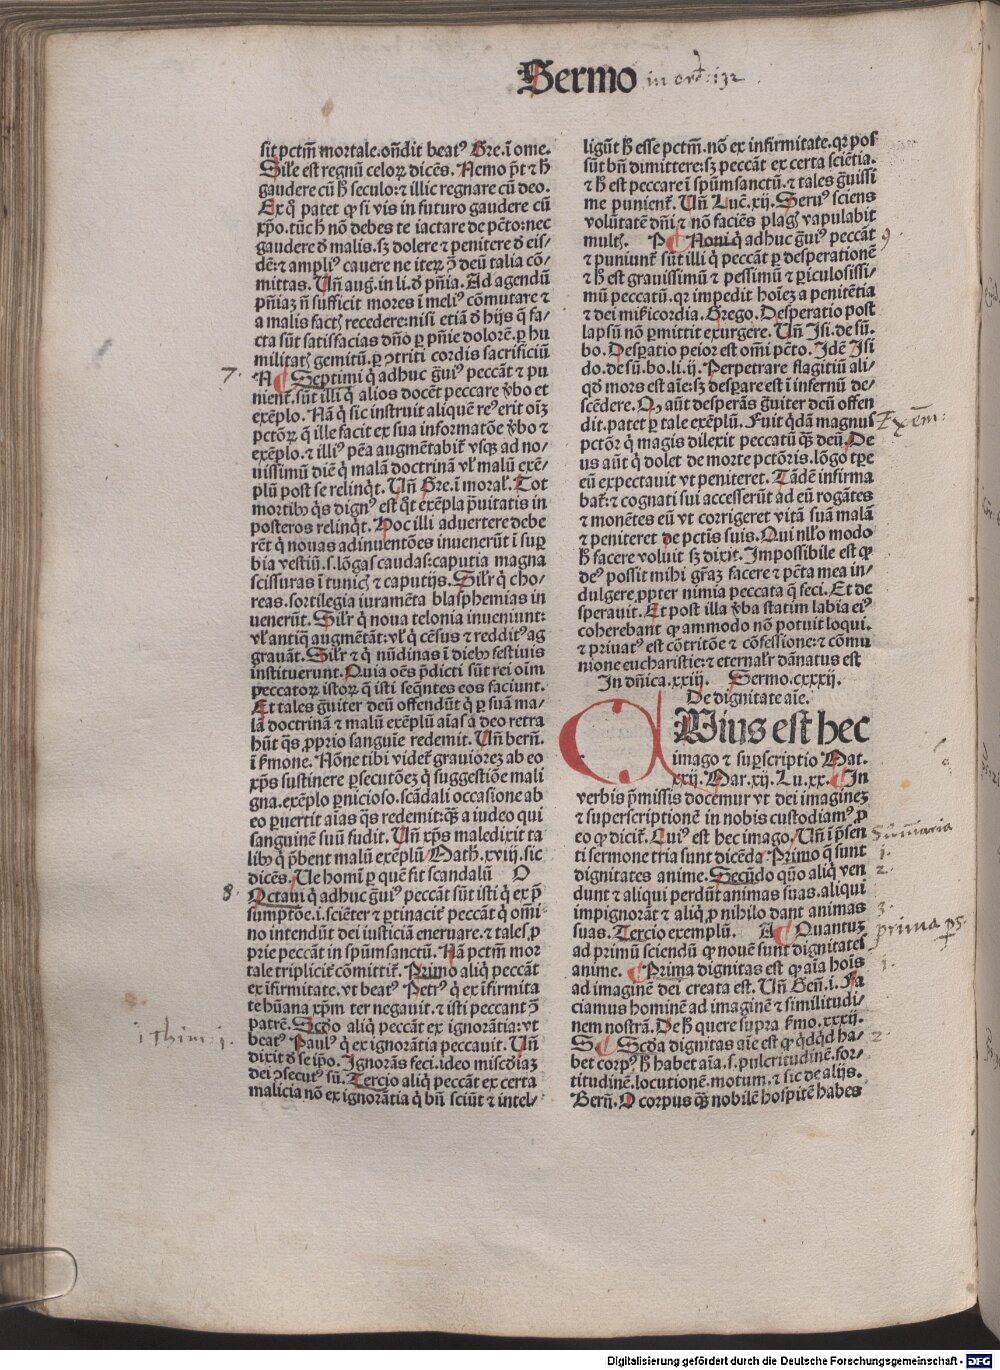 Sermo in ord: 132
sit pctm̄ mortale.oñdit beatꝰ Gre.ī ome.
Sil'e est regnū celoꝝ dicēs. Nemo p̄t ⁊ h̄
gaudere cū h̄ seculo:⁊ illic regnare cū deo.
Ex q̄ patet ꝙ si vis in futuro gaudere cū
xp̄o.tūc h̄ nō debes te iactare de pctō:nec
gaudere d̄ malis.sꝫ dolere ⁊ penitere d̄ eis/
dē:⁊ ampliꝰ cauere ne iteꝝ ꝯ̄ deū talia cō/
mittas. Vñ aug.in li.d̄ pñia. Ad agendū
pñiaꝫ ñ sufficit mores ī meliꝰ cōmutare ⁊
a malis factꝭ recedere:nisi etiā d̄ hijs q̄ fa/
cta sūt satisfacias dño ꝑ pñie dolorē.ꝑ hu
militatꝭ gemitū.ꝑ ꝯtriti cordis sacrificiū
7. N Septimi q̇ adhuc g̃uiꝰ peccāt ⁊ pu
nient̄.sūt illi q̇ alios docēt peccare v̄bo et
exēplo. Nā q̇ sic instruit aliquē reꝰ erit oīꝫ
pctōꝝ q̄ ille facit ex sua informatōe v̄bo ⁊
exēplo.⁊ illiꝰ pēa augmētabit̄ vsqꝫ ad no/
uissimū diē q̇ malā doctrinā vl' malū exē/
plū post se relinq̇t. Vñ Gre.ī moral'. Tot
mortibꝰ q̇s dignꝰ est q̇t exēpla p̄uitatis in
posteros relinq̇t. Hoc illi aduertere debe
rēt q̇ nouas adinuentōes inuenerūt ī suꝑ
bia vestiū.s.lōgas caudas:caputia magna
scissuras ī tunicꝭ ⁊ caputijs. Sil'r q̇ cho/
reas.sortilegia iuramēta blasphemias in
uenerūt. Sil'r q̇ noua telonia inueniunt:
vl' antiq̄ augmētāt:vl' q̇ cēsus ⁊ redditꝰ ag
grauāt. Sil'r ⁊ q̇ nūdinas ī diebꝰ festiuis
instituerunt. Quia oēs p̄dicti sūt rei oīm
peccatoꝝ istoꝝ q̇ isti seq̄ntes eos faciunt.
Et tales g̃uiter deū offendūt q̇ ꝑ suā ma/
lā doctrinā ⁊ malū exēplū aīas a deo retra
hūt q̄s ꝓprio sanguīe redemit. Vñ berñ.
ī ẜmone. Nōne tibi videt̄ grauioreꝫ ab eo
xp̄s sustinere ꝑsecutōeꝫ q̇ suggestiōe mali
gna.exēplo ꝑnicioso.scādali occasione ab
eo ꝑuertit aīas q̄s redemit:q̄ꝫ a iudeo qui
sanguinē suū fudit. Vñ xp̄s maledixit ta
libꝰ q̇ p̄bent malū exēplū Math.xviij.sic
dicēs. Ve homī ꝑ quē fit scandalū O
8. Octaui q̇ adhuc g̃uiꝰ peccāt sūt isti q̇ ex p̄
sumptōe.i.sciēter ⁊ ꝑtinacit̄ peccāt q̇ om̄i/
no intendūt dei iusticiā eneruare.⁊ tales ꝓ
prie peccāt in spūmsanctū. Nā pctm̄ mor
tale triplicit̄ cōmittit̄. Primo aliq̇ peccāt
ex īfirmitate.vt beatꝰ Petrꝰ q̇ ex īfirmita
te hūana xp̄m ter negauit.⁊ isti peccant ꝯ̄
patrē. Scd̄o aliq̇ peccāt ex ignorātia:vt
i thim: i. beatꝰ Paulꝰ q̇ ex ignorātia peccauit. Vñ
dixit d̄ seip̄o. Ignorās feci.ideo misc̄diaꝫ
dei ꝯsecutꝰ sū. Tercio aliq̇ peccāt ex certa
malicia nō ex ignorātia q̇ bñ sciūt ⁊ intel-
ligūt h̄ esse pctm̄.nō ex infirmitate.qꝛ pos
sūt bñ dimittere:sꝫ peccāt ex certa sciētia.
⁊ h̄ est peccare ī spūmsanctū.⁊ tales g̃uissi
me punient̄. Vñ Luc̄.xij. Seruꝰ sciens
volūtatē dñi ⁊ nō faciēs plagꝭ vapulabit
multꝭ. P Noni q̇ adhuc g̃uiꝰ peccāt 9.
⁊ puniunt̄ sūt illi q̇ peccāt ꝑ desperationē
⁊ h̄ est grauissimū ⁊ pessimū ⁊ ꝑiculosissi/
mū peccatū.qꝛ impedit hoīeꝫ a penitētia
⁊ dei mīẜicordia. Grego. Desperatio post
lapsū nō ꝑmittit exurgere. Vñ Isi.de sū.
bo. Desꝑatio peior est om̄i pctō. Idē Isi
do.de sū.bo.li.ij. Perpetrare flagitiū ali/
qd̄ mors est aīe:sꝫ desꝑare est ī infernū de/
scēdere. Qꝙ aūt desperās g̃uiter deū offen
dit.patet ꝑ tale exēplū. Fuit q̇dā magnus Exem:
pctōr q̇ magis dilexit peccatū q̄ꝫ deū. De
us aūt q̇ dolet de morte pctōris.lōgo tp̄e
eū expectauit vt peniteret. Tādē infirma
bat̄:⁊ cognati sui accesserūt ad eū rogātes
⁊ monētes eū vt corrigeret vitā suā malā
⁊ peniteret de pctīs suis. Qui nll'o modo
h̄ facere voluit sꝫ dixit. Impossibile est ꝙ
deꝰ possit mihi gr̄aꝫ facere ⁊ pctā mea in/
dulgere.ꝓpter nimia peccata q̄ feci. Et de
sperauit. Et post illa v̄ba statim labia eiꝰ
coherebant ꝙ ammodo nō potuit loqui.
⁊ priuatꝰ est cōtritōe ⁊ cōfessione:⁊ cōmu
nione eucharistie:⁊ eternal'r dānatus est
In dñica.xxiij. Sermo.cxxxij.
De dignitate aīe.
CVius est hec
imago ⁊ suꝑscriptio Mat.
xxij. Mar.xij. Lu.xx. In
verbis p̄missis docemur vt dei imagineꝫ
⁊ superscriptionē in nobis custodiamꝰ.ꝓ
eo ꝙ dicit̄. Cuiꝰ est hec imago. Vñ ī p̄sen Sum̄aria
ti sermone tria sunt dicēda. Primo q̄ sunt 1.
dignitates anime. Secūdo quō aliq̇ ven 2.
dunt ⁊ aliqui perdūt animas suas.aliqui
impignorāt ⁊ aliq̇ ꝓ nihilo dant animas 3.
suas. Tercio exemplū. A Quantuꝫ prima ps.
ad primū sciendū ꝙ nouē sunt dignitates
anime. Prima dignitas est ꝙ aīa hoīs 1.
ad imaginē dei creata est. Vñ Geñ.i. Fa
ciamus hominē ad imaginē ⁊ similitudi/
nem nostrā. De h̄ quere supra ẜmo.xxxij.
S Scd̄a dignitas aīe est ꝙ q̇dq̇d ha/ 2.
bet corpꝰ h̄ habet aīa.s.pulcritudinē.for/
titudinē.locutionē.motum.⁊ sic de alijs.
Berñ. O corpus q̄ꝫ nobilē hospitē habes
Digitalisierung gefördert durch die Deutsche Forschungsgemeinschaft - DFG